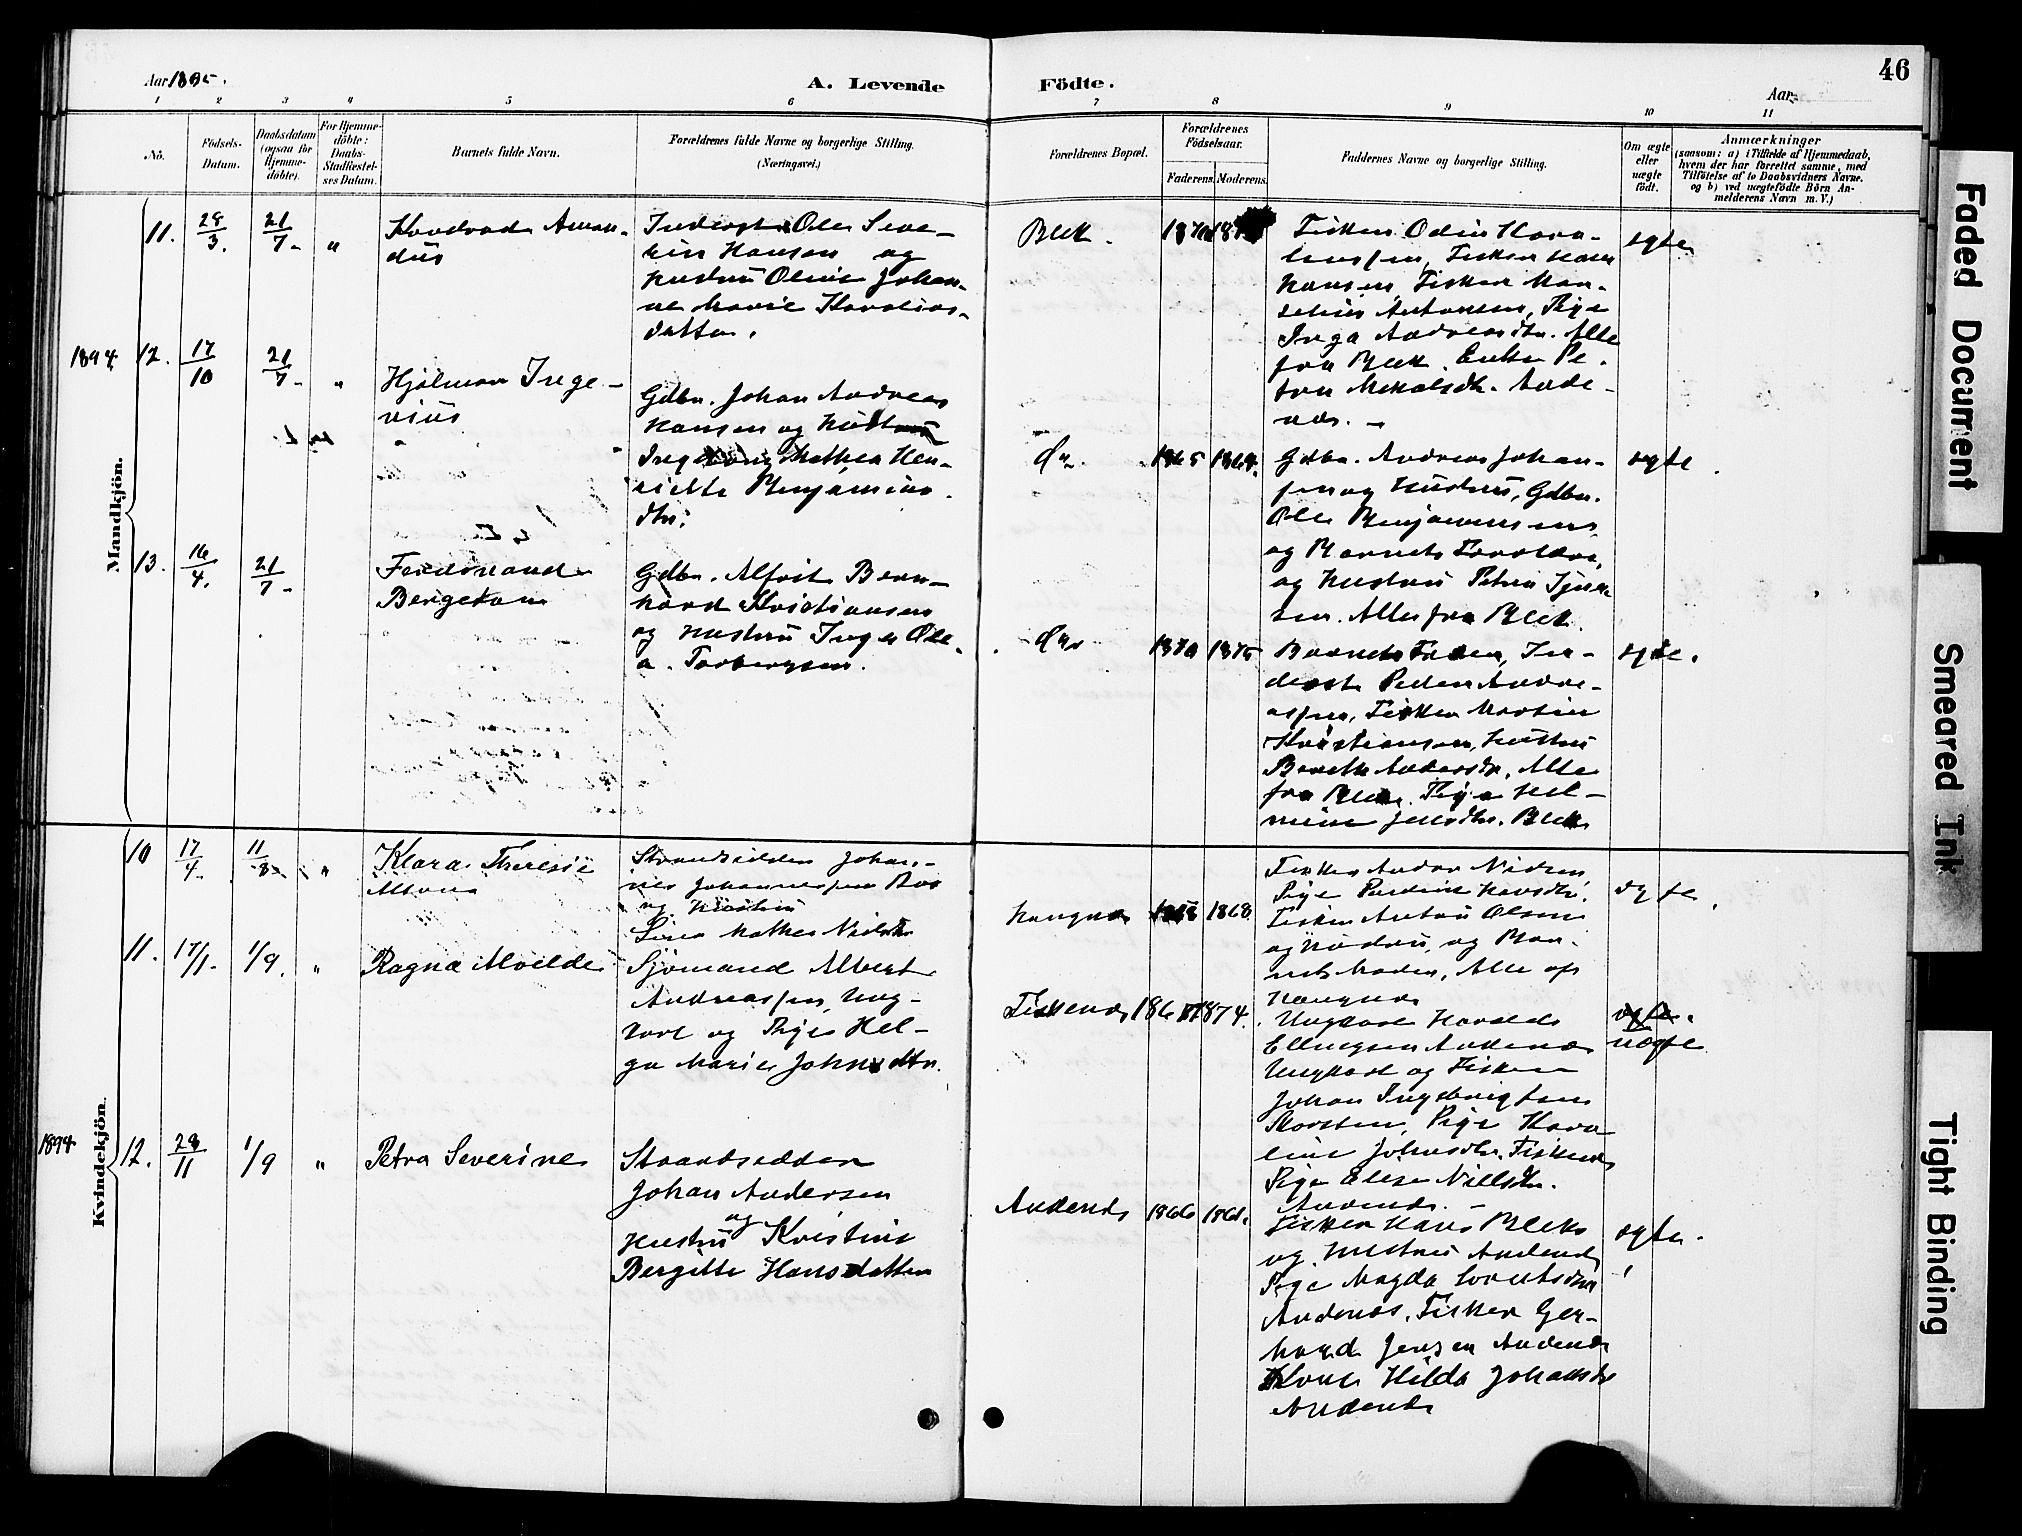 46
Aar 1895.
A. Levende Födte.
Aar
1 2 3 4 5 6 7 8 9 10 11
No.
Födsels-
Datum.
Daabsdatum
(ogsaa for
Hjemme-
döbte).
For Hjemme-
döbte:
Daabs-
Stadfæstel-
ses Datum.
Barnets fulde Navn.
Forældrenes fulde Navne og borgerlige Stilling.
(Næringsvei.)
Forældrenes Bopæl.
Forældrenes
Födselsaar.
Faderens. Moderens.
Faddernes Navne og borgerlige Stilling.
Om ægte
eller
uægte
födt.
Anmærkninger
(saasom: a) i Tilfælde af Hjemmedaab,
hvem der har forrettet samme, med
Tilföielse af to Daabsvidners Navne.
og b) ved uægtefödte Börn An-
melderens Navn m. V.)
Mandkjön.
11. 28/3. 21/7. "
Konrad Aman-
dus
Inderst Ole Seve-
rin Hansen og
Hustru Oline Johan-
ne Marie Karolius-
datter.
Bleik.
Fisker Odin Karo-
liussen, Fisker Hans
Hansen Fisker Han-
selius Antonsen, Pige
Inga Andreasdtr. Alle
fra Bleik. Enke Pe-
tra Mikalsdtr. Ande-
næs. -
ægte
1894 12. 17/10 21/7. "
Hjalmar Inge-
vius
Gdbr. Johan Andreas
Hansen og Hustru
Mathea Hen-
riette Benjamins.
dtr.
do. 1865 1868.
Gdbr. Andreas Johan-
sen og Hustru, Gdbr.
Ole Benjaminsens
og Barnets Forældre,
og Hustru Petra
Alle fra Bleik.
ægte.
13. 16/4. 21/7.
Ferdinand
Bergeton
Gdbr. Alfrit Bern-
hard Kristiansen
og Hustru Inger Ole-
a. Torbergsen.
do. 1870 1875
Barnets Fader, In-
derst Peder Andre-
assen, Fisker Martin
Kristiansen, Hustru
Bereth Andersdtr. Alle
fra Bleik. Pige Hel-
mine Jensdtr. Bleik
ægte.
Kvindekjön.
10 17/4. 11/8. "
Klara Theresie
Altona
Strandsidder Johan-
nes Johannessen Boe
og Hustru
Sina Mathea Nielsdtr
Haugnes 1868.
Fisker Andor Nielsen
Pige Hansdtr.
Fisker Anton Olsen
og Hustru, og Bar-
nets Moder, Alle af
Haugnes
ægte.
11. 17/1. 1/9. "
Ragna Alvilde
Sjömand Albert
Andreassen, Ung-
karl og Pige Hel-
ga Marie Johnsdtr.
Fiskenes 1874.
Ungkarl Harald
Ellingsen Andenæs
Ungkarl og Fisker
Johan Ingebrigtsen
Pige Karo-
line Johnsdtr. Fiskenes
Pige Elise Nielsdtr.
Andenes. -
ægte.
uægte
1894 12. 28/11 1/9 "
Petra Severine
Strandsidder
Johan Andersen
og
Hustru Kristine
Bergitte Hansdatter
Andenes 1866
Fisker Hans Bleik
og Hustru Andenes
Pige Magda Lorentsdtr
Andenæs, Fisker Ger-
hard Jensen Andenes
Kone Hilda Johansdtr
Andenes
ægte.
Faded Document
Smeared Ink
Tight Binding